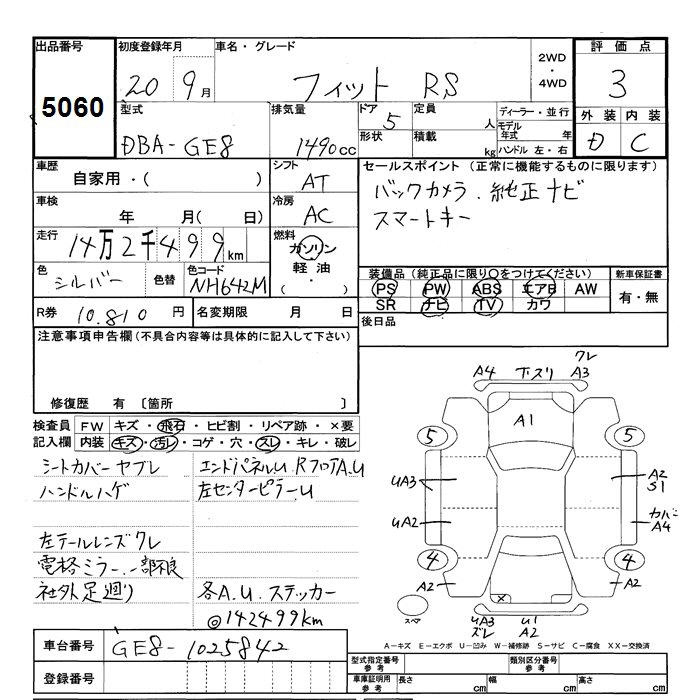 出品番号 初度登録年月 車名・グレード 2WD・4WD 評価点
5060 20 9月 フィット RS 3
型式 排気量 ドア 定員 ディーラー・並行 外装 内装
DBA-GE8 1490cc 5 人 モデル年式 年 D C
形状 積載 kg ハンドル 左・右
車歴 シフト セールスポイント (正常に機能するものに限ります)
自家用・( ) AT バックカメラ.純正ナビ
車検 冷房 スマートキー
年 月( 日) AC
走行 燃料
14万2千499km ガソリン
軽油
(・)
色 色替 色コード 装備品(純正品に限り○をつけてください) 新車保証書
シルバー NH642M PS PW ABS エアB AW 有・無
SR ナビ TV カワ
R券 10.810円 名変期限 月 日 後日品
注意事項申告欄(不具合内容等は具体的に記入して下さい)
修復歴 有 〔箇所 〕
検査員 FW キズ・飛石・ヒビ割・リペア跡・×要
記入欄 内装 キズ・汚レ・コゲ・穴・スレ・キレ・破レ
シートカバーヤブレ エンドパネルU.RフロアA.U
ハンドルハゲ 左センターピラーU
左テールレンズワレ
電格ミラー.一部不良
社外足廻り 各A.U.ステッカー
@142499km
A4 下スリ ワレ A3
A1
5 5
UA3 A2 S1
UA2 カバー A4
4 4
A2 × A2
スペア UA3 ズレ U1 A2
A-キズ E-エクボ U-凹み W-補修跡 S-サビ C-腐食 XX-交換済
車台番号 GE8-1025842
型式指定番号 参考 類別区分番号 参考
登録番号
車庫証明用 参考 長さ cm 幅 cm 高さ cm